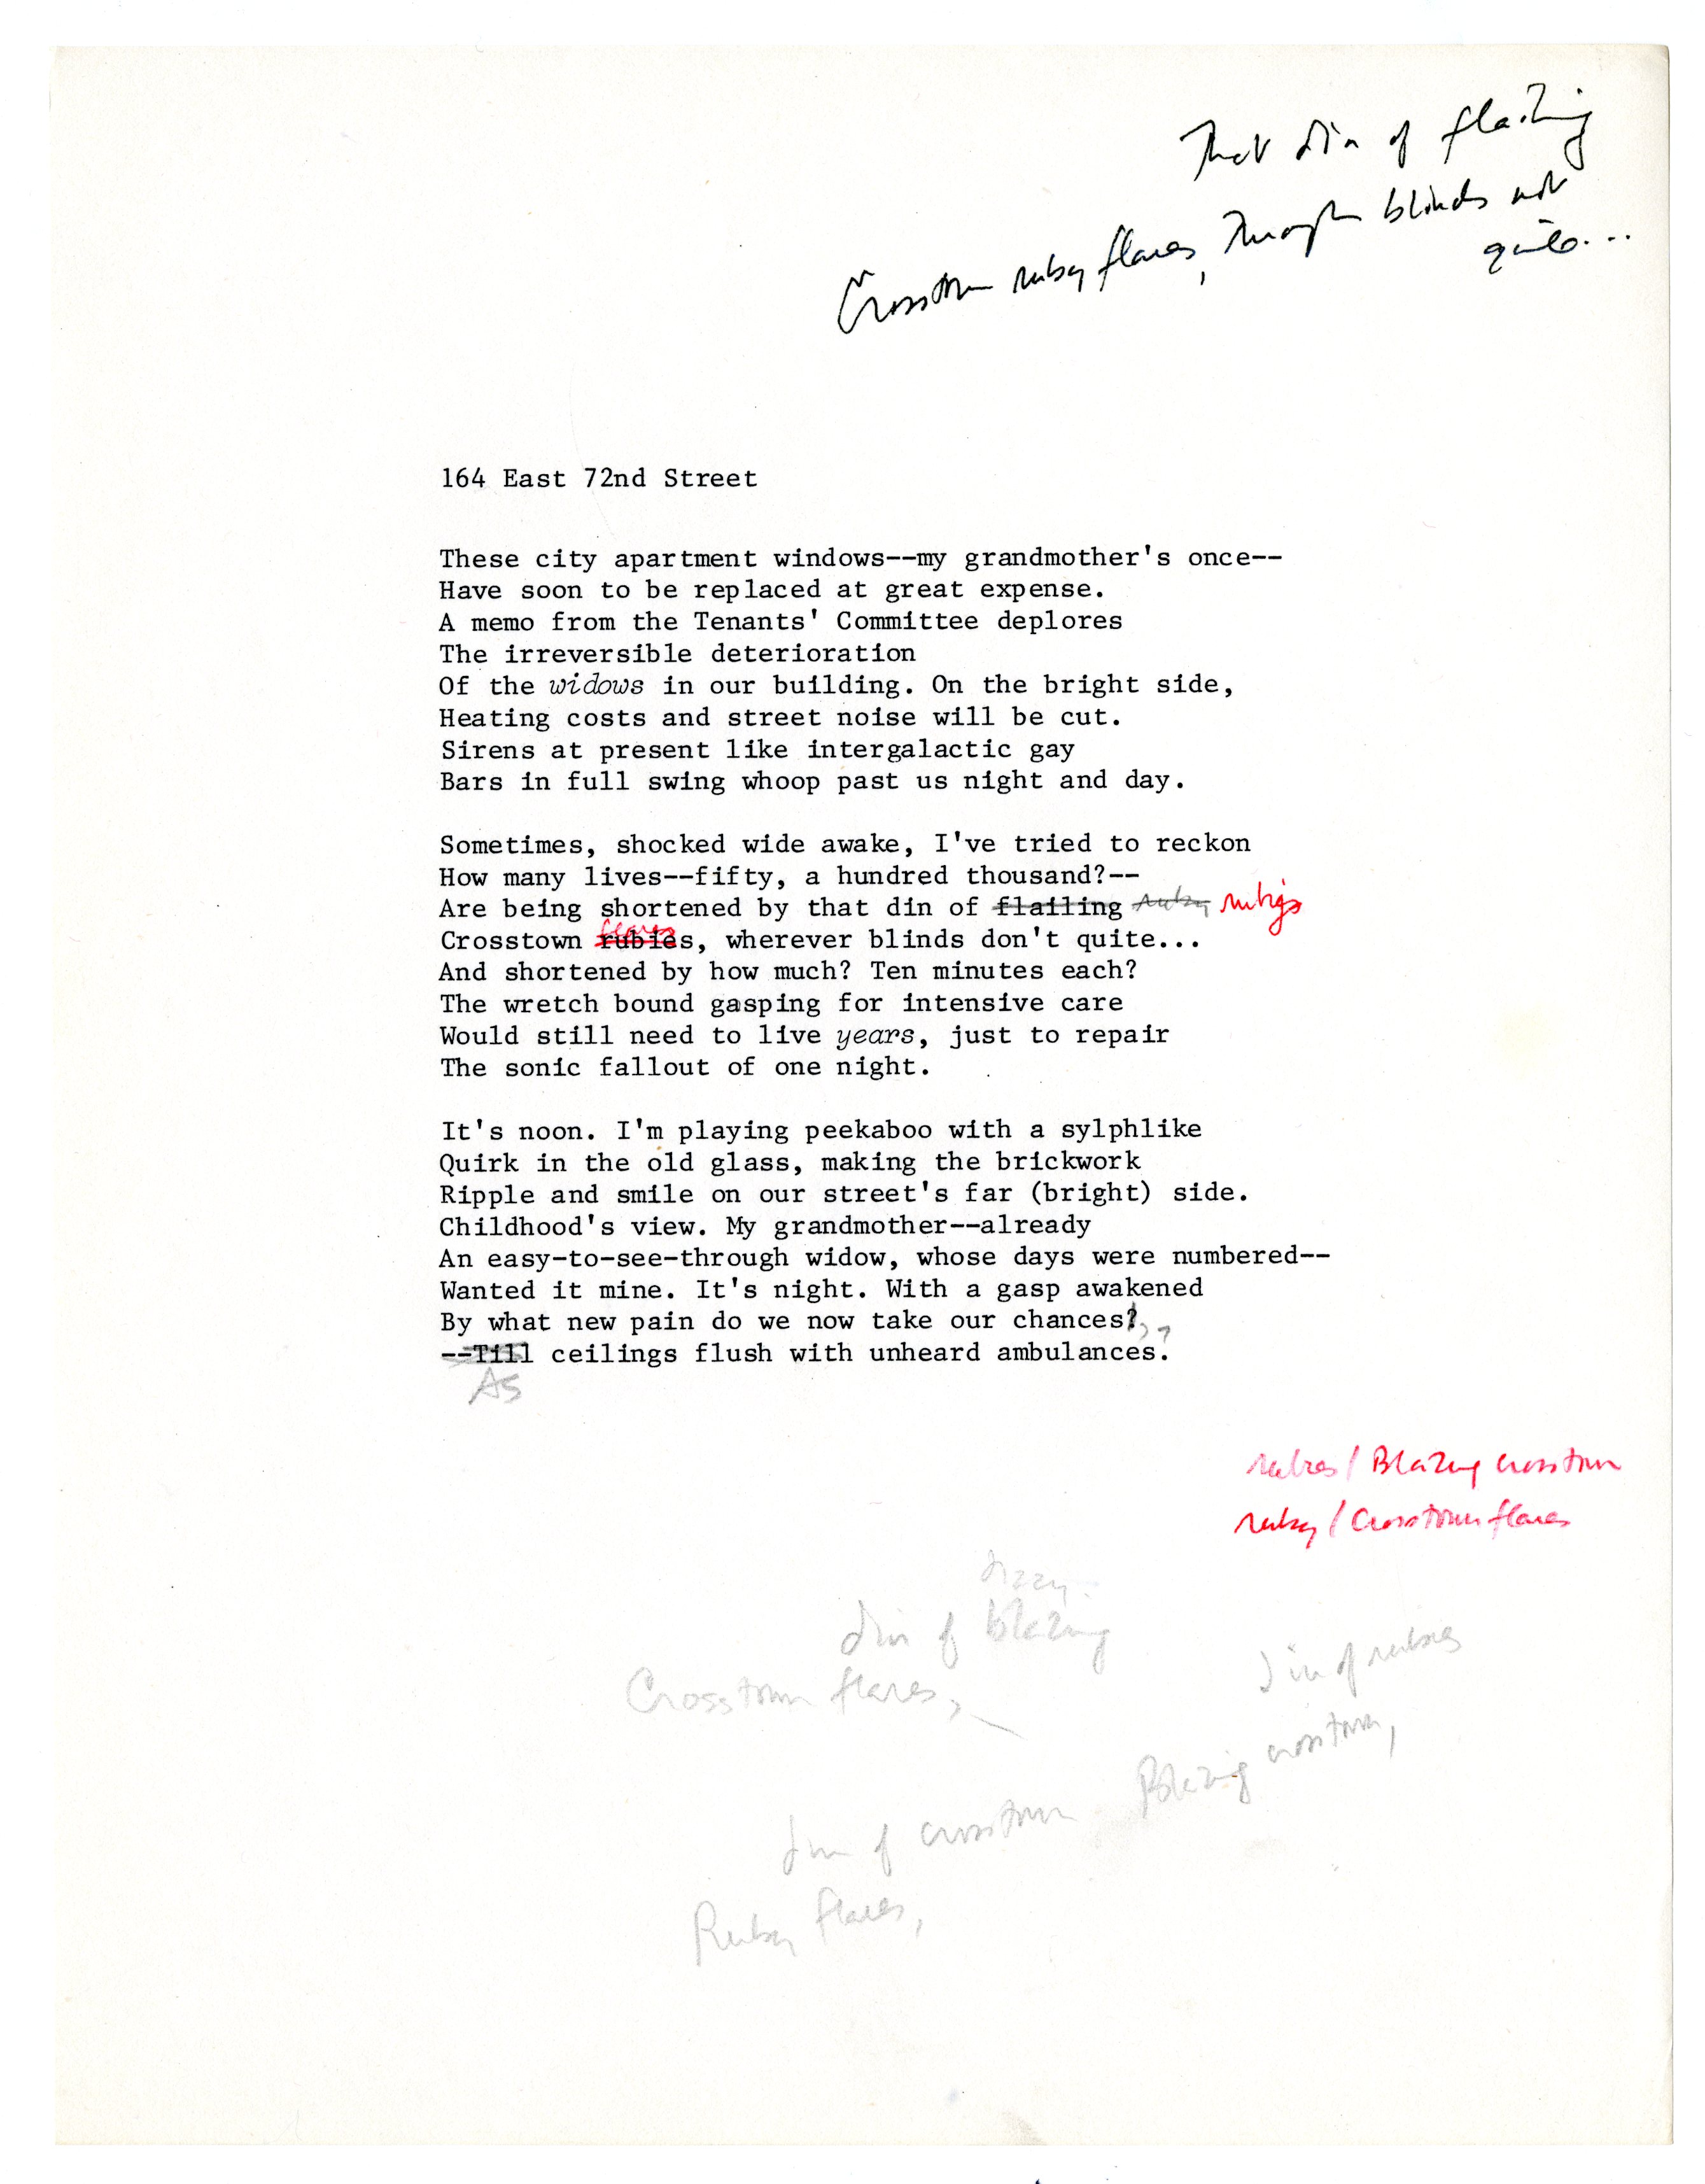 That din of flailing
Crosstown ruby flares, through blinds not
quite...
164 East 72nd Street
These city apartment windows--my grandmother's once--
Have soon to be replaced at great expense.
A memo from the Tenants' Committee deplores
The irreversible deterioration
Of the widows in our building. On the bright side,
Heating costs and street noise will be cut.
Sirens at present like intergalactic gay
Bars in full swing whoop past us night and day.
Sometimes, shocked wide awake, I've tried to reckon
How many lives--fifty, a hundred thousand?--
Are being shortened by that din of flailing ruby
flares
Crosstown rubies, wherever blinds don't quite...
And shortened by how much? Ten minutes each?
The wretch bound gasping for intensive care
Would still need to live years, just to repair
The sonic fallout of one night.
It's noon. I'm playing peekaboo with a sylphlike
Quirk in the old glass, making the brickwork
Ripple and smile on our street's far (bright) side.
Childhood's view. My grandmother--already
An easy-to-see-through widow, whose days were numbered--
Wanted it mine. It's night. With a gasp awakened
By what new pain do we now take our chances?,?
--Till ceilings flush with unheard ambulances.
As
rubies / Blazing crosstown
ruby / Crosstown flares
dizzy
din of blazing
Crosstown flares,
din of rubies
Blazing crosstown,
din of crosstown
Ruby flares,